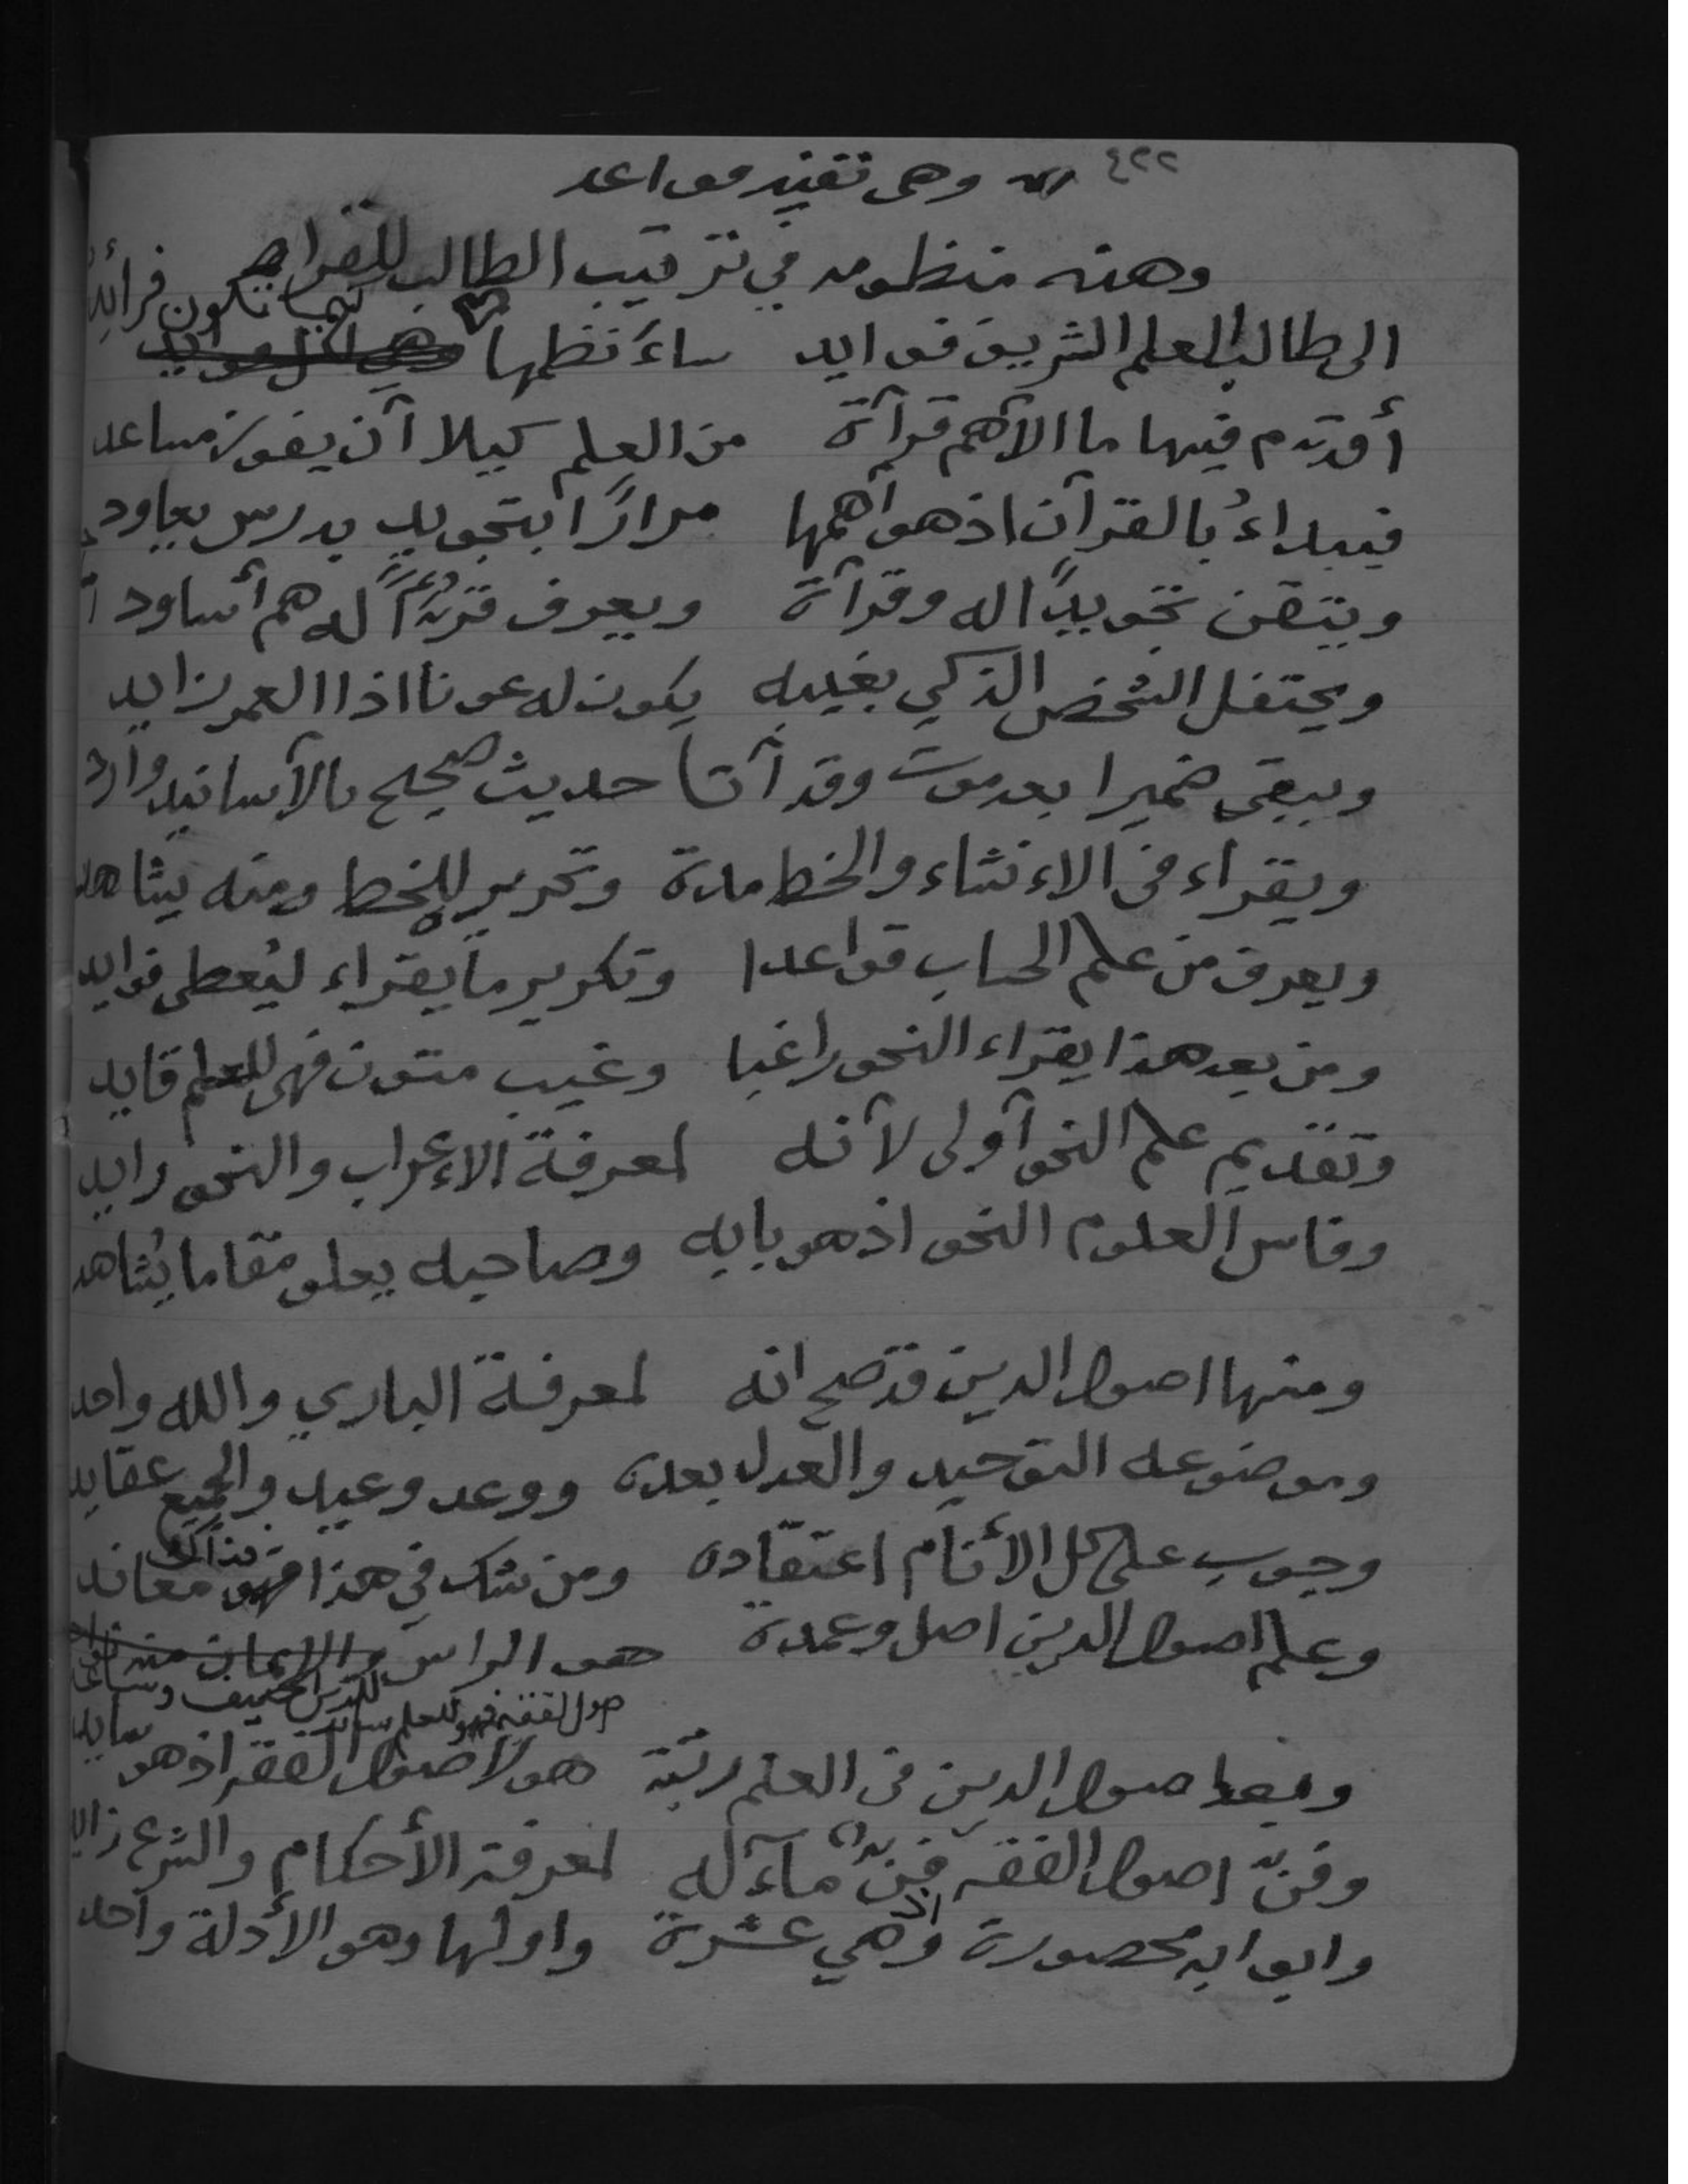 ٤٢٢ وهي تفيد مواعد
وهذه منظومه في ترتيب الطالب للقراءة
الى طالب العلم الشريف فوايد ساءنظمها كيما تكون فرائد
أقدم فيها ما الآهم قرآة من العلم كيلا آن يفوز مساعد
فيبداءُ بالقرآن اذ هو آهمها مرارًا بتجويد يدرس يعاود
ويتقن تجويدًا له وقرآة ويعرف له هم أساود
ويحتفل الشخص الذكي بغيبه يكون له عونا اذا العمر زايد
ويبقى خميرا بعد موت وقد آتا حديث صحيح بالآسانيد وارد
ويقراء في الاءنشاء والخط مدة وتحرير للخط ومنه يشاهد
ويعرف من علم الحساب قواعدا وتكرير ما يقراء ليُعطى فوايد
ومن بعد هذا يقراء النحو راغبا وغيب متون فهي للعلم قايد
وتقديم علم النحو آولى لآنه لمعرفة الاءعراب والنحو رايد
وفاس العلوم النحو اذ هو بابه وصاحبه يعلو مقاما يُشاهد
ومنها اصول الدين قد صح انه لمعرفة الباري والله واحد
وموضوعه التوحيد والعدل بعده ووعد وعيد والجميع عقايد
وجوب على كل الأنام اعتقاده ومن شك في هذا فذاك معاند
وعلم اصول الدين اصل وعمدة هو الراس للدين الحنيف وساعد
صول الفقه فهو للعلم ساند
وبعد اصول الدين في العلم رتبة هو لآصول الفقه اذ هو سايد
وفنّ اصول الفقه فنّ مآءله لمعرفة الأحكام والشرع زايد
وابوابه محصورة وهي عشرة واولها وهو الأدلة واحد